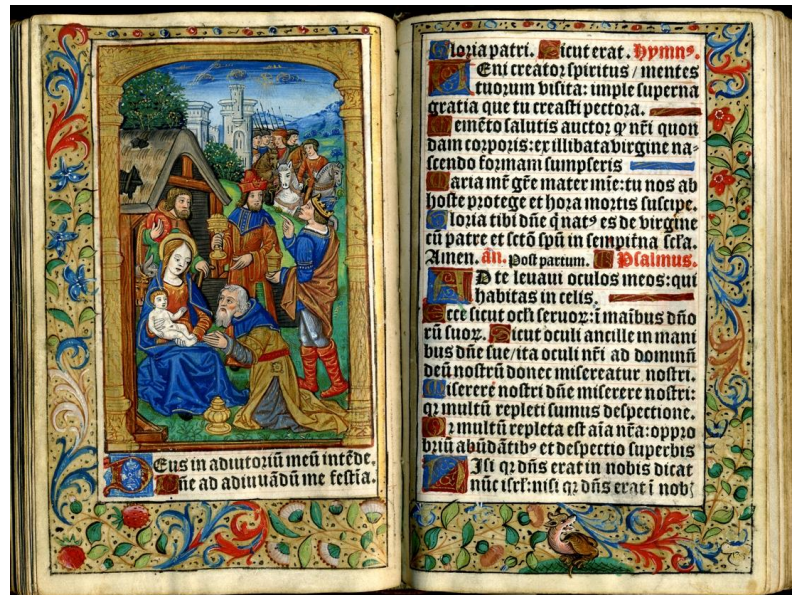 Deus in adiutoriū meū intēde.
Dn̄e ad adiuuādū me festīa.
Gloria patri. Sicut erat. Hymnꝰ.
VEni creator spiritus / mentes
tuorum visita: imple superna
gratia que tu creasti pectora.
Memēto salutis auctor ꝙ nr̄i quon
dam corporis: ex illibata virgine na⸗
scendo formam sumpseris
Maria mr̄ gr̄e mater mīe: tu nos ab
hoste protege et hora mortis suscipe.
Gloria tibi dn̄e q̇ natꝰ es de virgine
cū patre et sctō spū in sempitna scl̄a.
Amen. an̄. Post partum. Psalmus.
AD te leuaui oculos meos: qui
habitas in celis.
Ecce sicut ocl̄i seruoꝝ: ī maībus dn̄o
rū suoꝝ. Sicut oculi ancille in mani
bus dn̄e sue / ita oculi nr̄i ad dominū
deū nostrū donec misereatur nostri.
Miserere nostri dn̄e miserere nostri:
qꝛ multū repleti sumus despectione.
Qꝛ multū repleta est aīa nr̄a: oppro
briū abūdātibꝰ et despectio superbis
NIsi qꝛ dn̄s erat in nobis dicat
nūc isrl̄: nisi qꝛ dn̄s erat ī nob